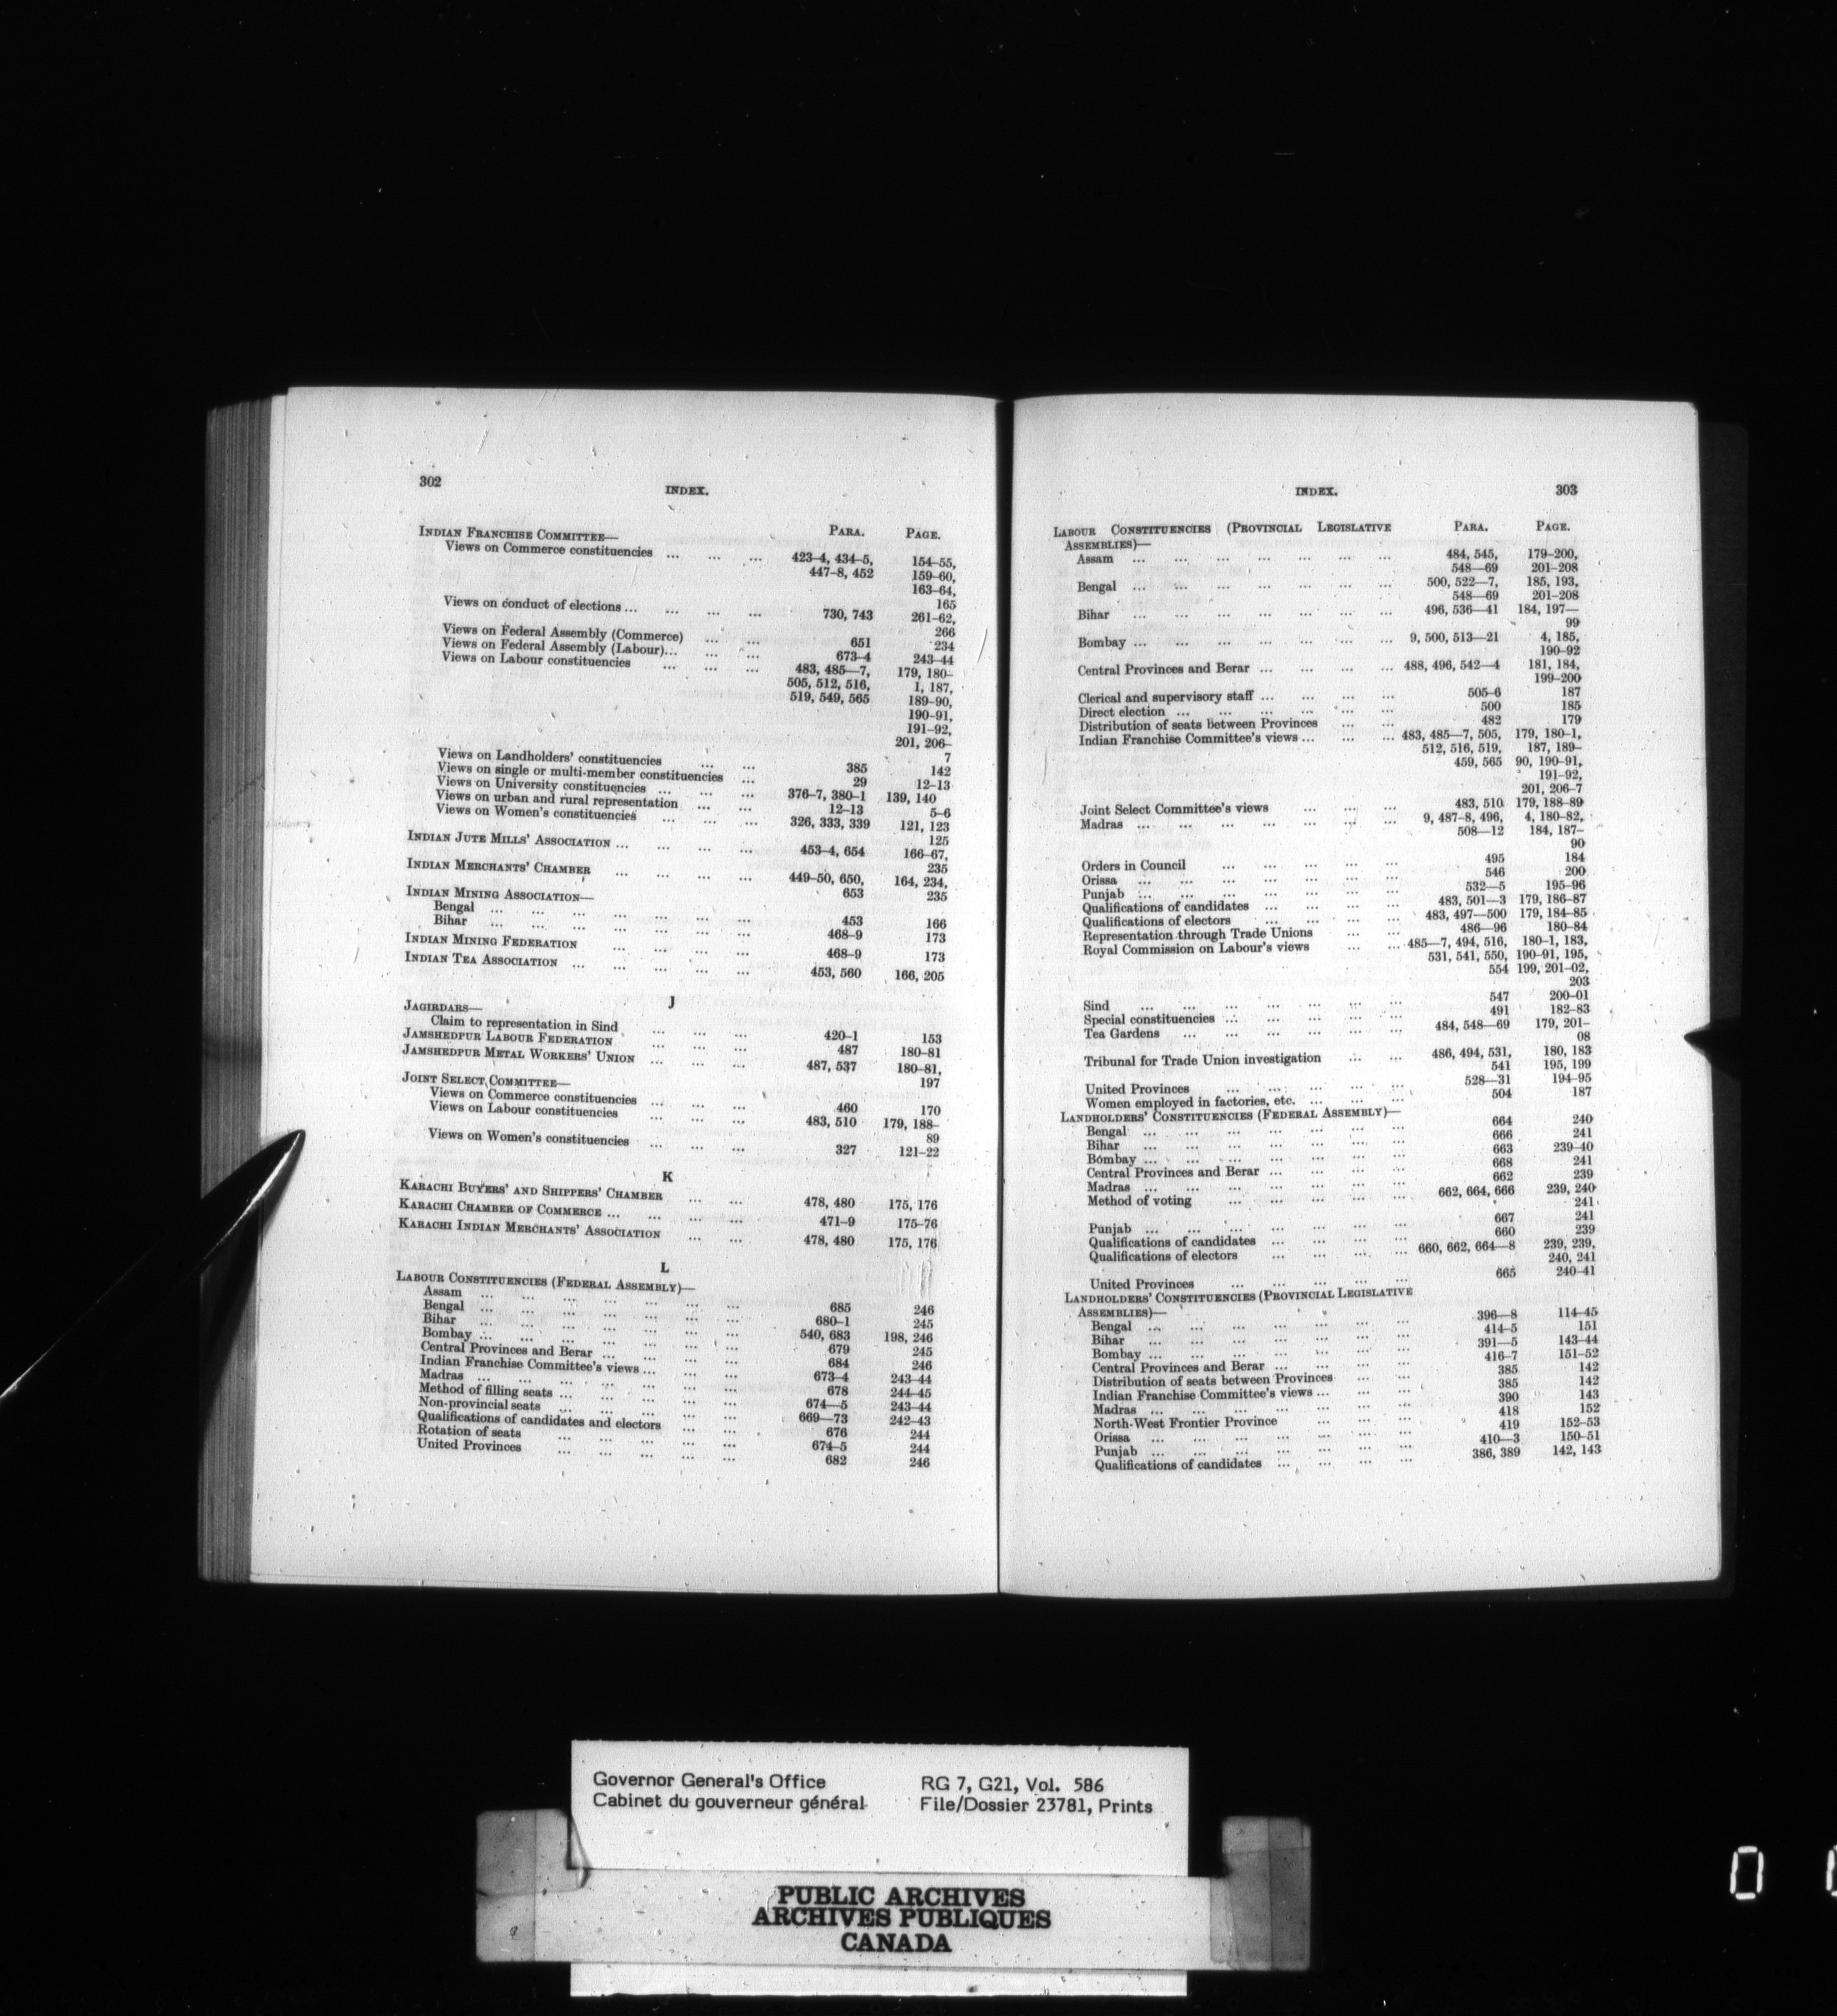 302
INDEX.
PARA. PAGE.
INDIAN FRANCHISE COMMITTEE—
Views on Commerce constituencies ... ... ... 423-4, 434-5, 154-55,
447-8, 452 159-60,
163-64,
165
Views on conduct of elections ... ... ... ... 730, 743 261-62,
266
Views on Federal Assembly (Commerce) ... ... 651 234
Views on Federal Assembly (Labour)... ... ... 673-4 243-44
Views on Labour constituencies ... ... ... 483, 485—7, 179, 180-
505, 512, 516, 1, 187,
519, 549, 565 189-90,
190-91,
191-92,
201, 206-
7
Views on Landholders' constituencies ... ... 385 142
Views on single or multi-member constituencies ... 29 12-13
Views on University constituencies ... ... ... 376-7, 380-1 139, 140
Views on urban and rural representation ... ... 12-13 5-6
Views on Women's constituencies ... ... ... 326, 333, 339 121, 123
125
INDIAN JUTE MILLS' ASSOCIATION ... ... ... ... 453-4, 654 166-67,
235
INDIAN MERCHANTS' CHAMBER ... ... ... ... 449-50, 650, 164, 234,
653 235
INDIAN MINING ASSOCIATION—
Bengal ... ... ... ... ... ... ... 453 166
Bihar ... ... ... ... ... ... ... 468-9 173
INDIAN MINING FEDERATION ... ... ... ... 468-9 173
INDIAN TEA ASSOCIATION ... ... ... ... ... 453, 560 166, 205
J
JAGIRDARS—
Claim to representation in Sind ... ... ... 420-1 153
JAMSHEDPUR LABOUR FEDERATION ... ... ... 487 180-81
JAMSHEDPUR METAL WORKERS' UNION ... ... ... 487, 537 180-81,
197
JOINT SELECT COMMITTEE—
Views on Commerce constituencies ... ... ... 460 170
Views on Labour constituencies ... ... ... 483, 510 179, 188-
89
Views on Women's constituencies ... ... ... 327 121-22
K
KARACHI BUYERS' AND SHIPPERS' CHAMBER ... ... 478, 480 175, 176
KARACHI CHAMBER OF COMMERCE ... ... ... ... 471-9 175-76
KARACHI INDIAN MERCHANTS' ASSOCIATION ... ... 478, 480 175, 176
L
LABOUR CONSTITUENCIES (FEDERAL ASSEMBLY)—
Assam ... ... ... ... ... ... ... 685 246
Bengal ... ... ... ... ... ... ... 680-1 245
Bihar ... ... ... ... ... ... ... 540, 683 198, 246
Bombay ... ... ... ... ... ... ... 679 245
Central Provinces and Berar ... ... ... ... 684 246
Indian Franchise Committee's views ... ... ... 673-4 243-44
Madras ... ... ... ... ... ... ... 678 244-45
Method of filling seats ... ... ... ... ... 674—5 243-44
Non-provincial seats ... ... ... ... ... 669—73 242-43
Qualifications of candidates and electors ... ... 676 244
Rotation of seats ... ... ... ... ... 674-5 244
United Provinces ... ... ... ... ... 682 246
INDEX. 303
PARA. PAGE.
LABOUR CONSTITUENCIES (PROVINCIAL LEGISLATIVE
ASSEMBLIES)—
Assam ... ... ... ... ... ... ... 484, 545, 179-200,
548—69 201-208
Bengal ... ... ... ... ... ... ... 500, 522—7, 185, 193,
548—69 201-208
Bihar ... ... ... ... ... ... ... 496, 536—41 184, 197—
99
Bombay ... ... ... ... ... ... ... 9, 500, 513—21 4, 185,
190-92
Central Provinces and Berar ... ... ... ... 488, 496, 542—4 181, 184,
199-200
Clerical and supervisory staff ... ... ... ... 505-6 187
Direct election ... ... ... ... ... ... 500 185
Distribution of seats between Provinces ... ... 482 179
Indian Franchise Committee's views ... ... ... 483, 485—7, 505, 179, 180-1,
512, 516, 519, 187, 189-
459, 565 90, 190-91,
191-92,
201, 206-7
Joint Select Committee's views ... ... ... 483, 510 179, 188-89
Madras ... ... ... ... ... ... ... 9, 487-8, 496, 4, 180-82,
508—12 184, 187-
90
Orders in Council ... ... ... ... ... 495 184
Orissa ... ... ... ... ... ... ... 546 200
Punjab ... ... ... ... ... ... ... 532—5 195-96
Qualifications of candidates ... ... ... ... 483, 501—3 179, 186-87
Qualifications of electors ... ... ... ... 483, 497—500 179, 184-85
Representation through Trade Unions ... ... 486—96 180-84
Royal Commission on Labour's views ... ... 485—7, 494, 516, 180-1, 183,
531, 541, 550, 190-91, 195,
554 199, 201-02,
203
Sind ... ... ... ... ... ... ... 547 200-01
Special constituencies ... ... ... ... ... 491 182-83
Tea Gardens ... ... ... ... ... ... 484, 548—69 179, 201-
08
Tribunal for Trade Union investigation ... ... 486, 494, 531, 180, 183
541 195, 199
United Provinces ... ... ... ... ... 528—31 194-95
Women employed in factories, etc. ... ... ... 504 187
LANDHOLDERS' CONSTITUENCIES (FEDERAL ASSEMBLY)—
Bengal ... ... ... ... ... ... ... 664 240
Bihar ... ... ... ... ... ... ... 666 241
Bombay ... ... ... ... ... ... ... 663 239-40
Central Provinces and Berar ... ... ... ... 668 241
Madras ... ... ... ... ... ... ... 662 239
Method of voting ... ... ... ... ... 662, 664, 666 239, 240
241
Punjab ... ... ... ... ... ... ... 667 241
Qualifications of candidates ... ... ... ... 660 239
Qualifications of electors ... ... ... ... 660, 662, 664—8 239, 239,
240, 241
United Provinces ... ... ... ... ... 665 240-41
LANDHOLDERS' CONSTITUENCIES (PROVINCIAL LEGISLATIVE
ASSEMBLIES)—
Bengal ... ... ... ... ... ... ... 396—8 114-45
Bihar ... ... ... ... ... ... ... 414-5 151
Bombay ... ... ... ... ... ... ... 391—5 143-44
Central Provinces and Berar ... ... ... ... 416-7 151-52
Distribution of seats between Provinces ... ... 385 142
Indian Franchise Committee's views ... ... ... 385 142
Madras ... ... ... ... ... ... ... 390 143
North-West Frontier Province ... ... ... 418 152
Orissa ... ... ... ... ... ... ... 419 152-53
Punjab ... ... ... ... ... ... ... 410—3 150-51
Qualifications of candidates ... ... ... ... 386, 389 142, 143
Governor General's Office RG 7, G21, Vol. 586
Cabinet du gouverneur général File/Dossier 23781, Prints
PUBLIC ARCHIVES
ARCHIVES PUBLIQUES
CANADA
0